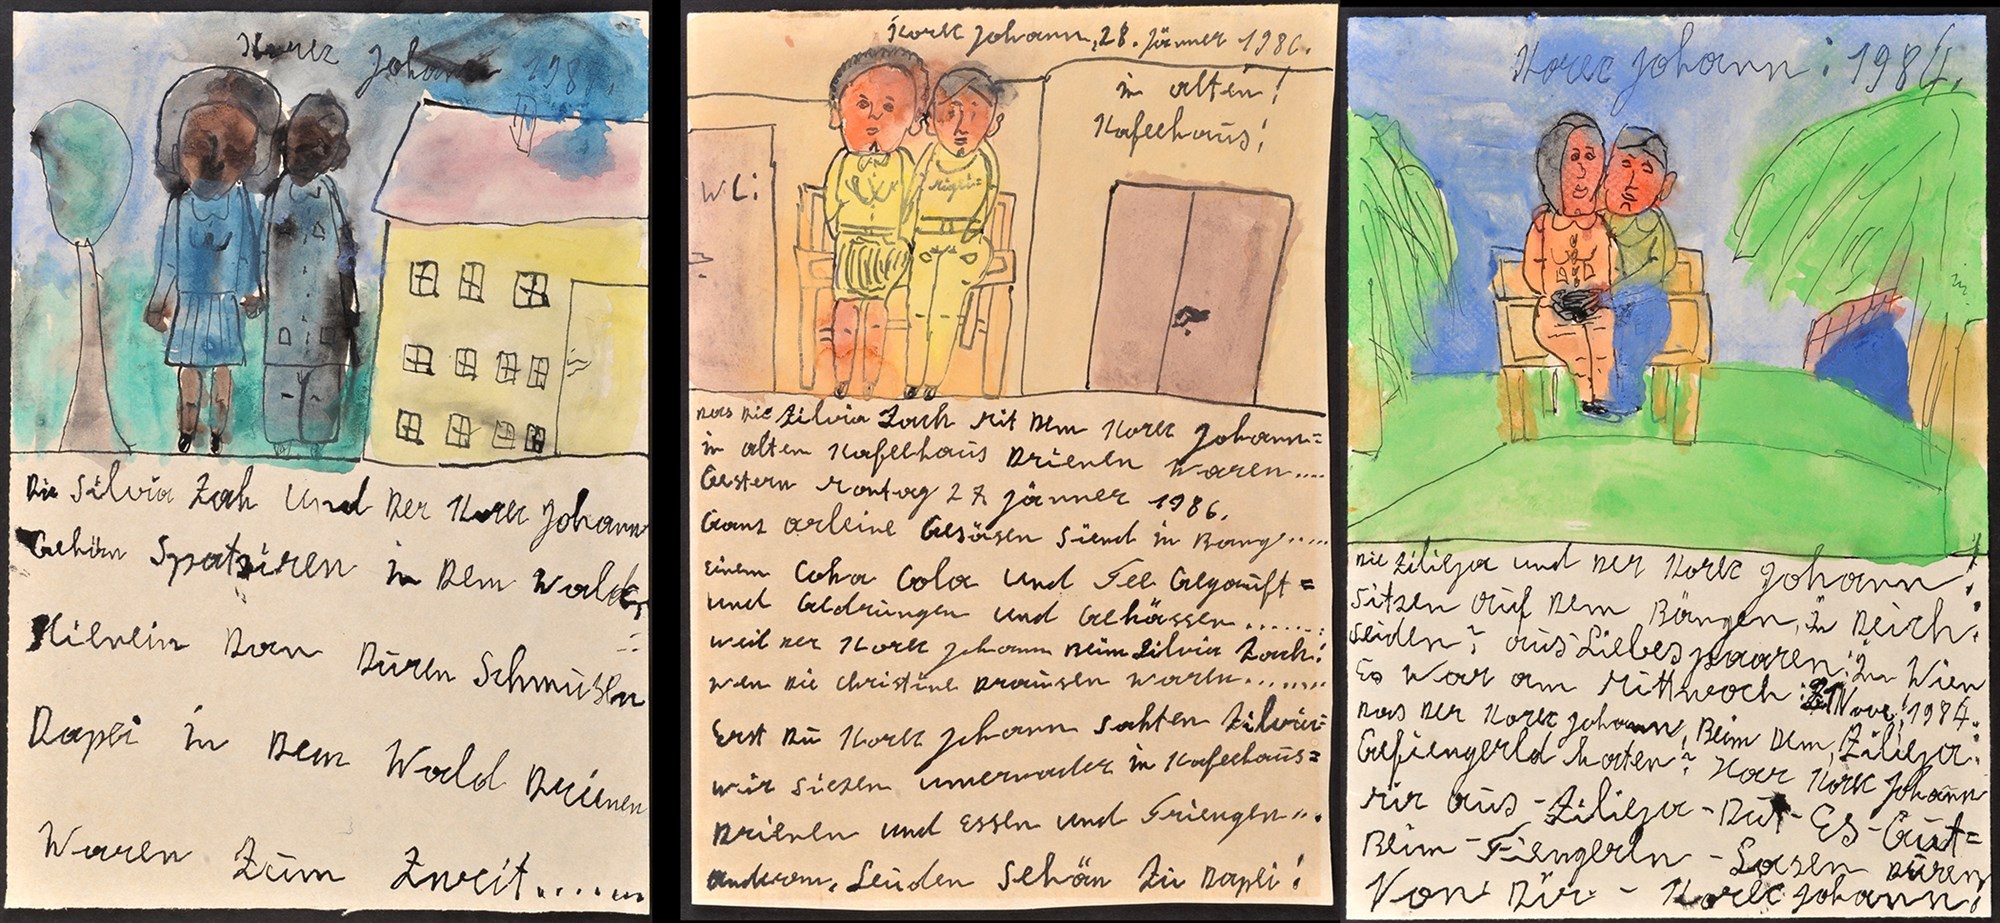 Korec Johann 198
Die Silvia Zah und Der Korec Johann
Gehön Spatziren in Dem Walde,
Hienein Dan Düren Schmußln
Dapei in Dem Wald Drienen
Waren Zum Zweit......
Korec Johann, 28. Jänner 1986.
in alten!
Kafeehaus!
WC:
Das Die Zilvia Zach Mit Dem Korec Johann=
in alten Kafeehaus Drienen Waren....
Gestern Montag 27 Jänner 1986.
Ganz arleine Gesäsen Siend in Bang.....
Einem Coka Cola und Tee Gegauift=
und Gedrungen und Gehässen.......
weil Der Korec Johann Beim Zilvia Zach!
wen Die Christine Drausen waren.......
Erst Du Korec Johann sahten Zilvia=
wir siezen in Kafeehaus=
Drienen und Essen und Triengen...
anderem, Leuden Schön Zu Dapei!
Korec Johann: 1984.
Die Zilieja und Der Korec Johann!
Sitzen auf Dem Bängen, in Deich.
Leuden? aus Liebespaaren: in Wien
Es War am Mittwoch: 21 Nove! 1984.
Das Der Korec Johann, Beim Dem, Zilieja:
Gefiengerld haten? Har Korec Johann
Mir aus - Zilieja - Dut - Es - Gut=
Beim - Fiengerln - Lasen Düren
Von Dir - Korec Johann!